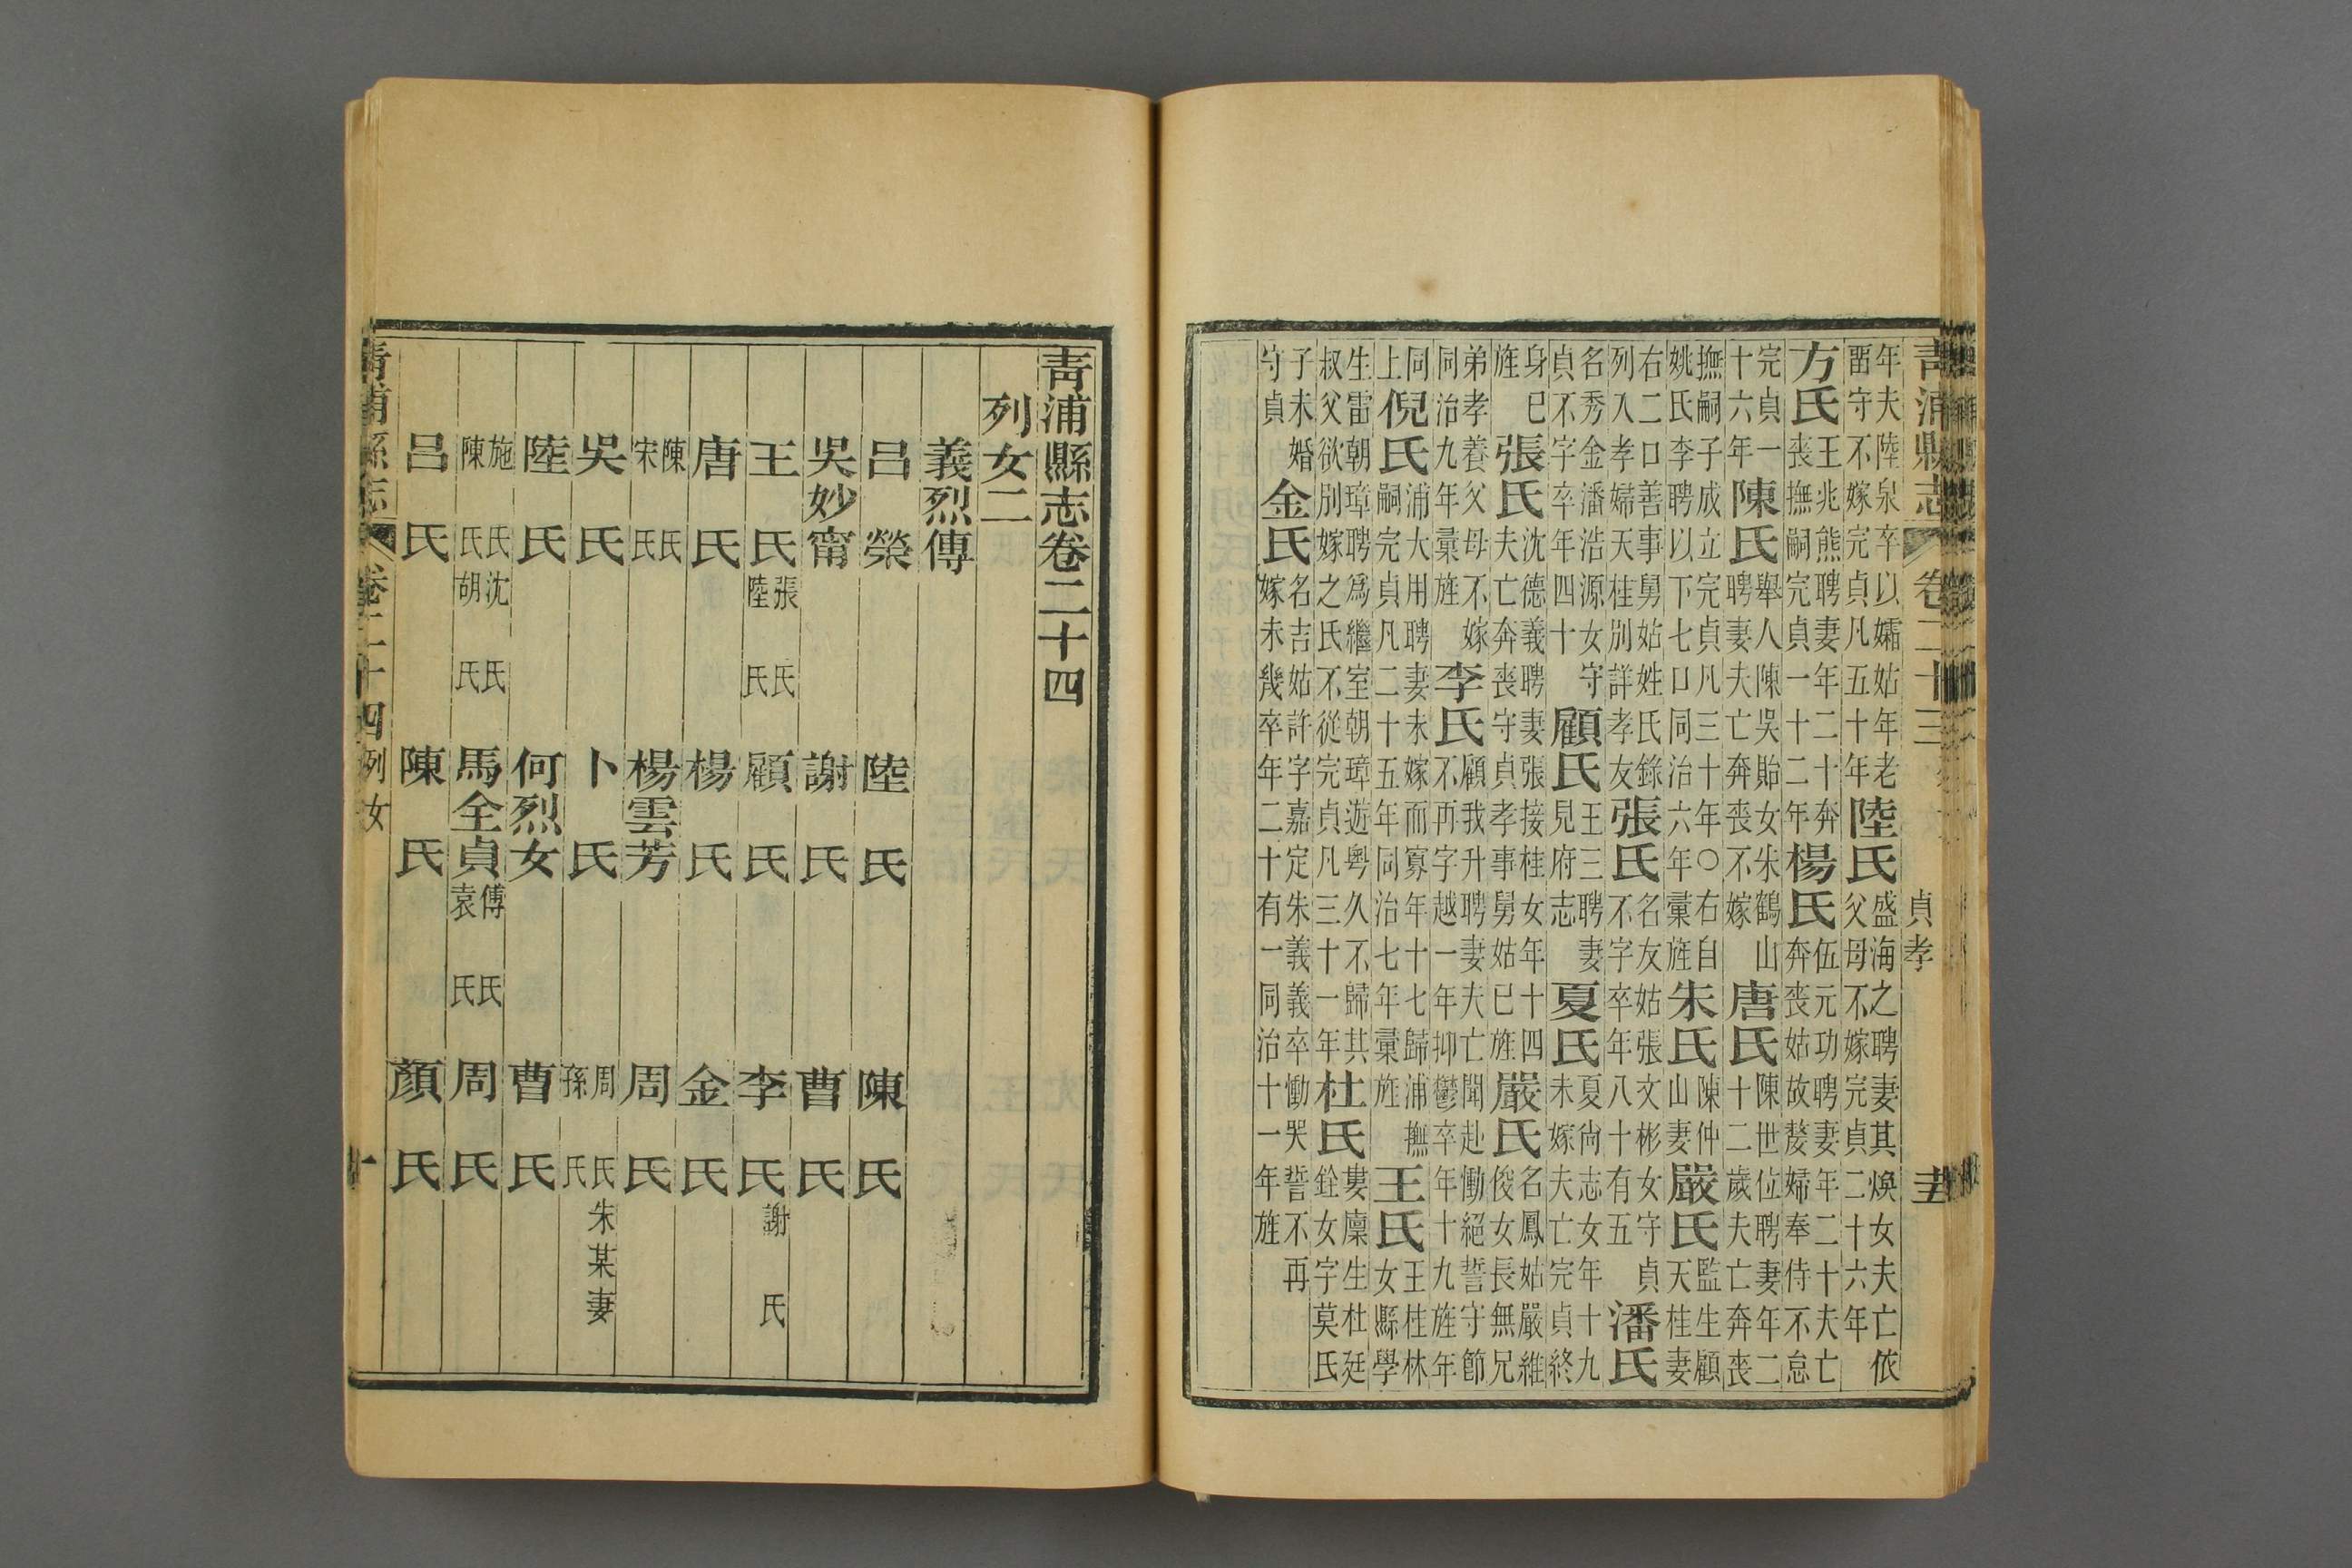 青浦縣志 卷二十三 貞孝
年夫陸泉卒以孀姑年老
畱守不嫁完貞凡五十年
陸氏
盛海之聘妻其煥女夫亡依
父母不嫁完貞二十六年
方氏
王兆熊聘妻年二十奔
喪撫嗣完貞一十二年
楊氏
伍元功聘妻年二十夫亡
奔喪姑故嫠婦奉侍不怠
完貞一
十六年
陳氏
舉人陳吳貽女朱鶴山
聘妻夫亡奔喪不嫁
唐氏
陳世位聘妻年二
十二歲夫亡奔喪
撫嗣子成立完貞凡三十年○右自
姚氏李聘以下七口同治六年彙旌
朱氏
陳仲
山妻
嚴氏
監生顧
天桂妻
右二口善事舅姑姓氏錄
列入孝婦天桂別詳孝友
張氏
名友姑張文彬女守貞
不字卒年八十有五
潘氏
名秀金潘浩源女守
貞不字卒年四十
顧氏
王三聘妻
見府志
夏氏
夏尙志女年十九
未嫁夫亡完貞終
身已
旌
張氏
沈德義聘妻張接桂女年十四
夫亡奔喪守貞孝事舅姑已旌
嚴氏
名鳳姑嚴維
俊女長無兄
弟孝養父母不嫁
同治九年彙旌
李氏
顧我升聘妻夫亡聞赴慟絕誓守節
不再字越一年抑鬱卒年十九旌年
同
上
倪氏
浦大用聘妻未嫁而寡年十七歸浦撫
嗣完貞凡二十五年同治七年彙旌
王氏
王桂林
女縣學
生雷朝璋聘爲繼室朝璋遊粤久不歸其
叔父欲別嫁之氏不從完貞凡三十一年
杜氏
婁廩生杜廷
銓女字莫氏
子未婚
守貞
金氏
名吉姑許字嘉定朱義義卒慟哭誓不再
嫁未幾卒年二十有一同治十一年旌
青浦縣志卷二十四
列女二
義烈傳
呂榮 陸氏 陳氏
吳妙甯 謝氏 曹氏
王氏 張氏 陸氏 顧氏 李氏 謝氏
唐氏 楊氏 金氏
陳氏 宋氏 楊雲芳 周氏
吳氏 卜氏 周氏 孫氏 朱某妻
陸氏 何烈女 曹氏
施氏 陳氏 沈氏 胡氏 馬全貞 傅氏 袁氏 周氏
呂氏 陳氏 顏氏
青浦縣志 卷二十四 列女 一